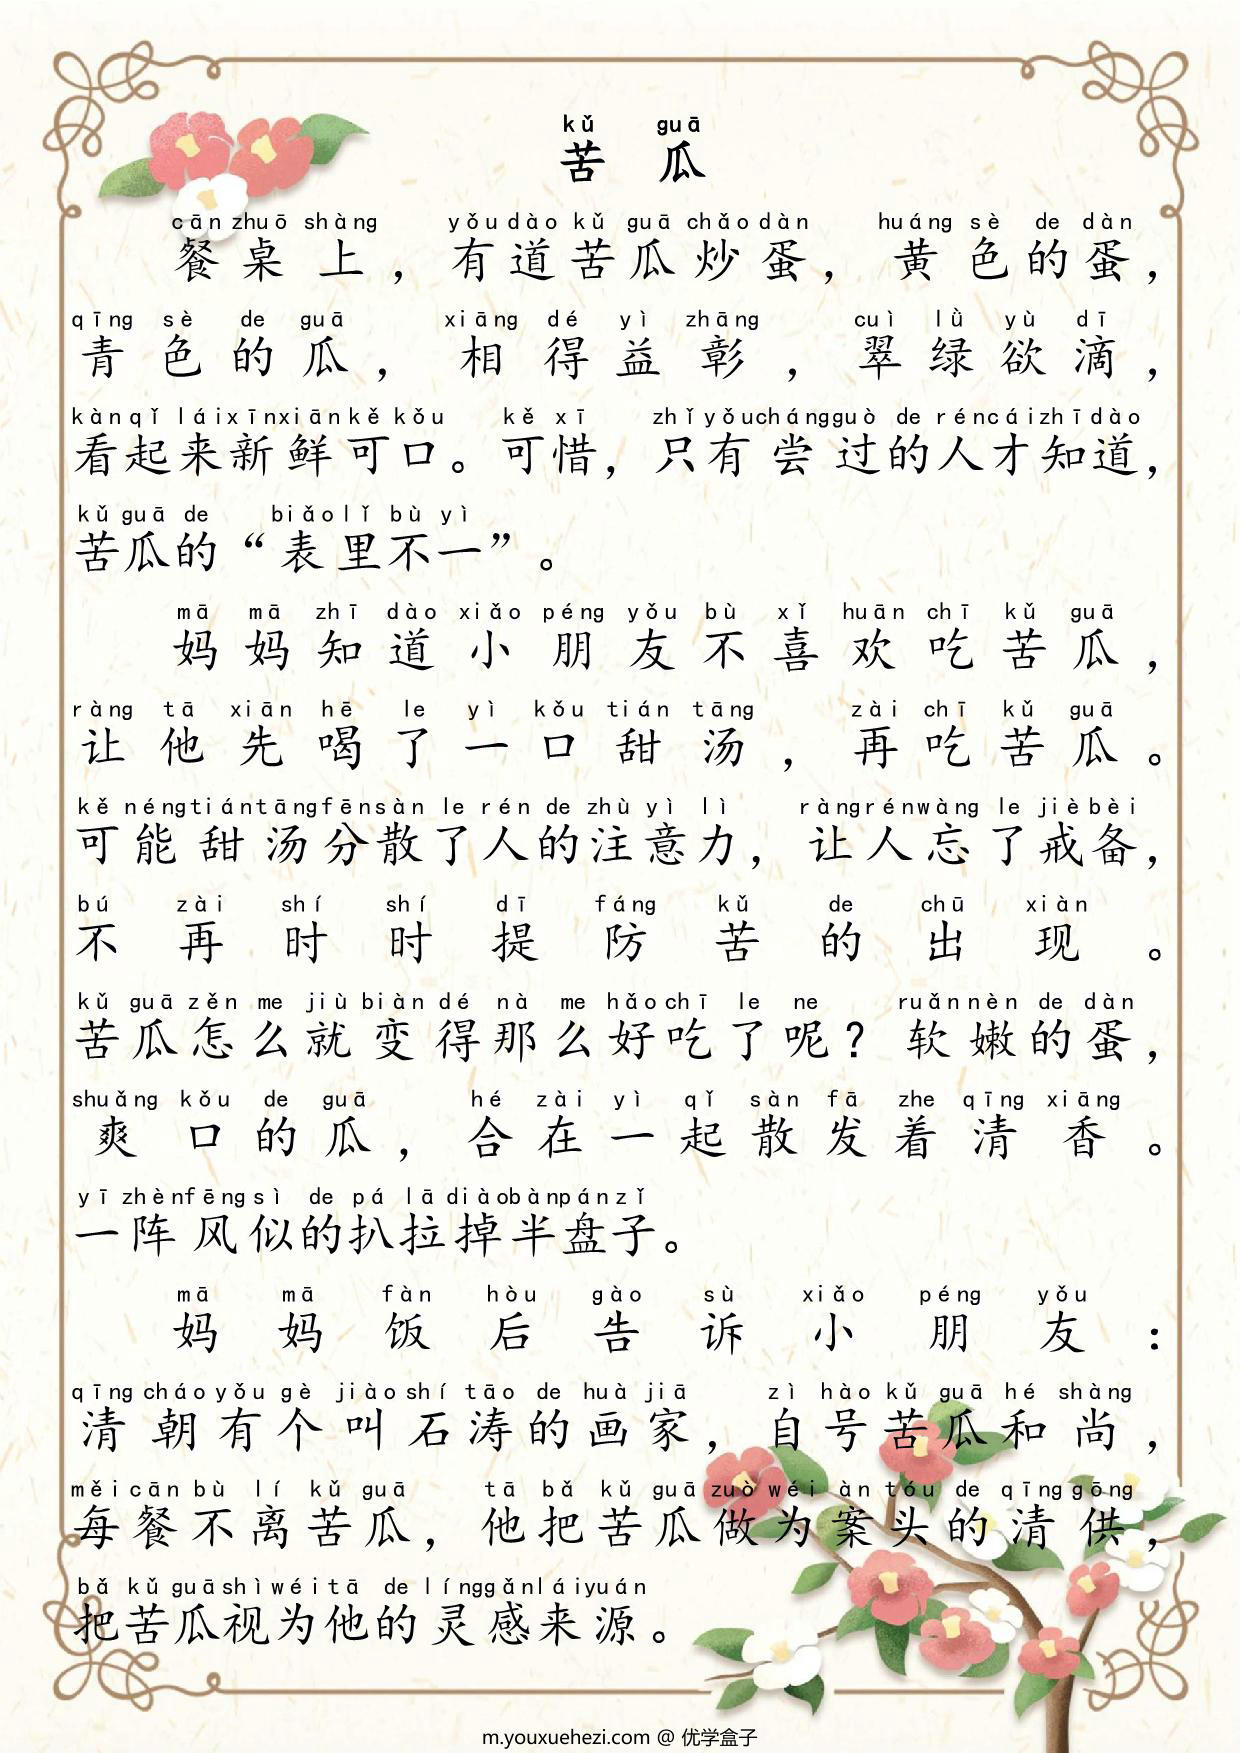 kǔ guā
苦瓜
cān zhuō shàng yǒu dào kǔ guā chǎo dàn huáng sè de dàn
餐桌上，有道苦瓜炒蛋，黄色的蛋，
qīng sè de guā xiāng dé yì zhāng cuì lǜ yù dī
青色的瓜，相得益彰，翠绿欲滴，
kàn qǐ lái xīn xiān kě kǒu kě xī zhǐ yǒu cháng guò de rén cái zhī dào
看起来新鲜可口。可惜，只有尝过的人才知道，
kǔ guā de biǎo lǐ bù yì
苦瓜的“表里不一”。
mā mā zhī dào xiǎo péng yǒu bù xǐ huān chī kǔ guā
妈妈知道小朋友不喜欢吃苦瓜，
ràng tā xiān hē le yì kǒu tián tāng zài chī kǔ guā
让他先喝了一口甜汤，再吃苦瓜。
kě néng tián tāng fēn sàn le rén de zhù yì lì ràng rén wàng le jiè bèi
可能甜汤分散了人的注意力，让人忘了戒备，
bú zài shí shí dī fáng kǔ de chū xiàn
不再时时提防苦的出现。
kǔ guā zěn me jiù biàn dé nà me hǎo chī le ne ruǎn nèn de dàn
苦瓜怎么就变得那么好吃了呢？软嫩的蛋，
shuǎng kǒu de guā hé zài yì qǐ sàn fā zhe qīng xiāng
爽口的瓜，合在一起散发着清香。
yī zhèn fēng sì de pá lā diào bàn pán zǐ
一阵风似的扒拉掉半盘子。
mā mā fàn hòu gào sù xiǎo péng yǒu
妈妈饭后告诉小朋友：
qīng cháo yǒu gè jiào shí tāo de huà jiā zì hào kǔ guā hé shàng
清朝有个叫石涛的画家，自号苦瓜和尚，
měi cān bù lí kǔ guā tā bǎ kǔ guā zuò wéi àn tóu de qīng gōng
每餐不离苦瓜，他把苦瓜做为案头的清供，
bǎ kǔ guā shì wéi tā de líng gǎn lái yuán
把苦瓜视为他的灵感来源。
m.youxuehezi.com @ 优学盒子